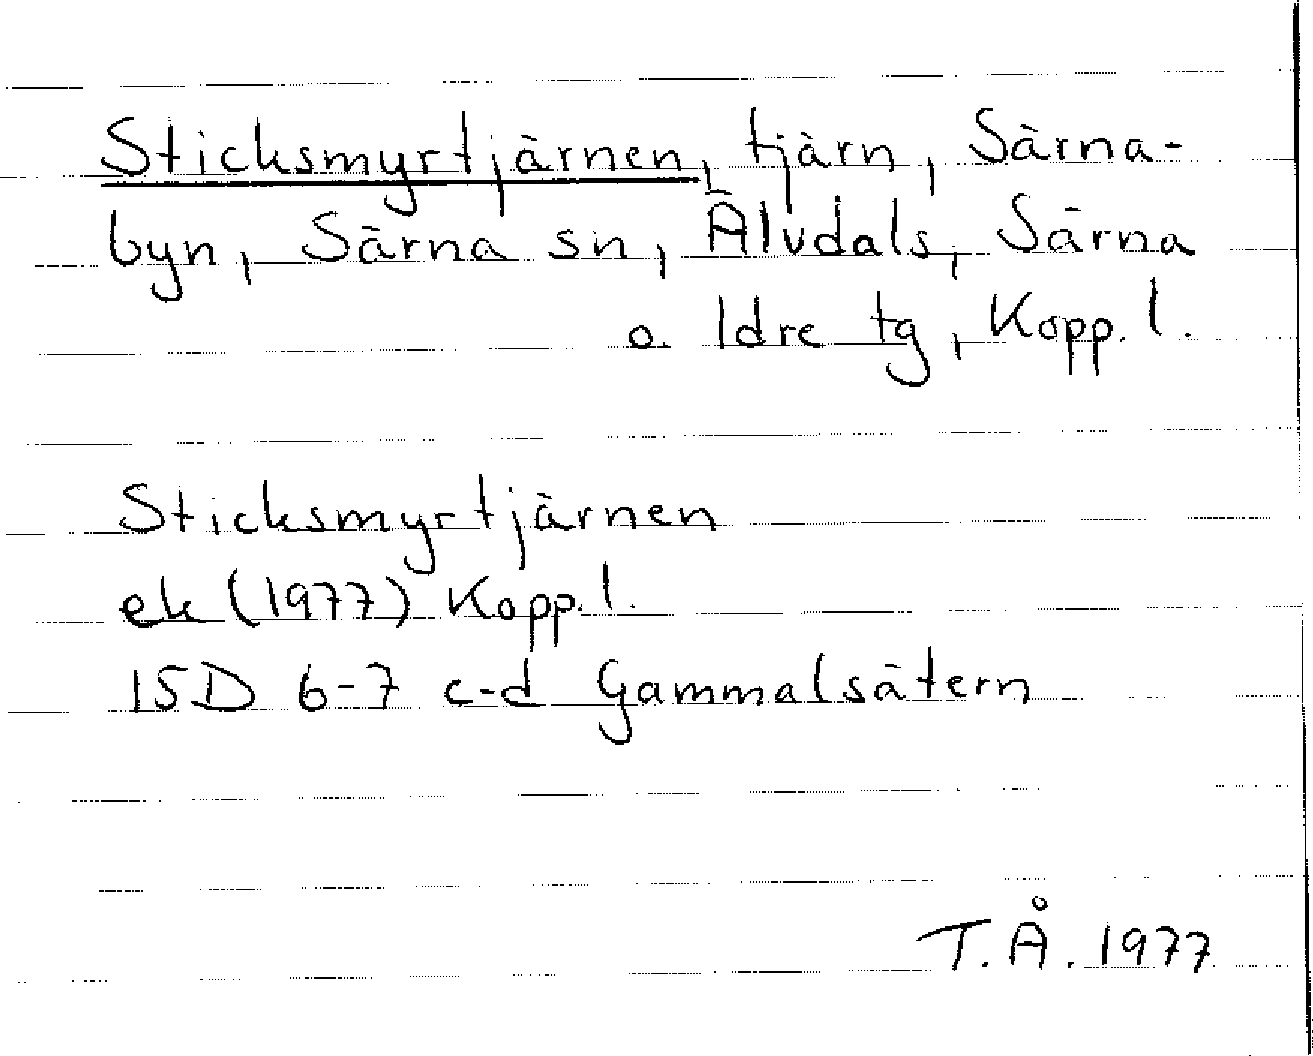 Sticksmyrtjärnen, tjärn, Särna-
byn, Särna sn, Älvdals, Särna
o. Idre tg, Kopp. l.
Sticksmyrtjärnen
ek (1977) Kopp. l.
15D 6-7 c-d Gammalsätern
T.Å. 1977